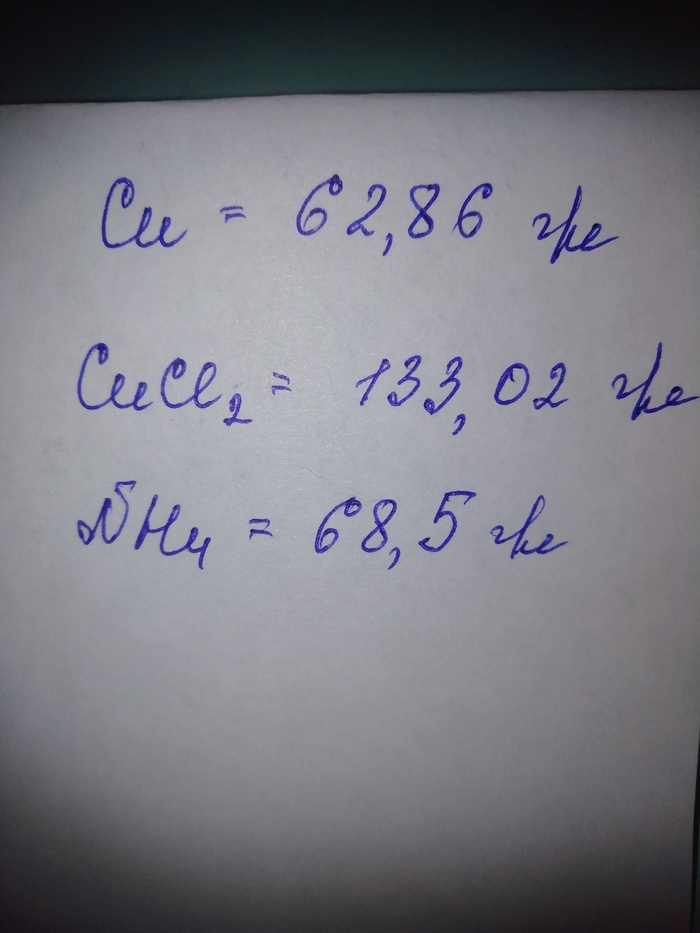 Cu = 62,86 гр
CuCl₂ = 133,02 гр
NH₄ = 68,5 гр